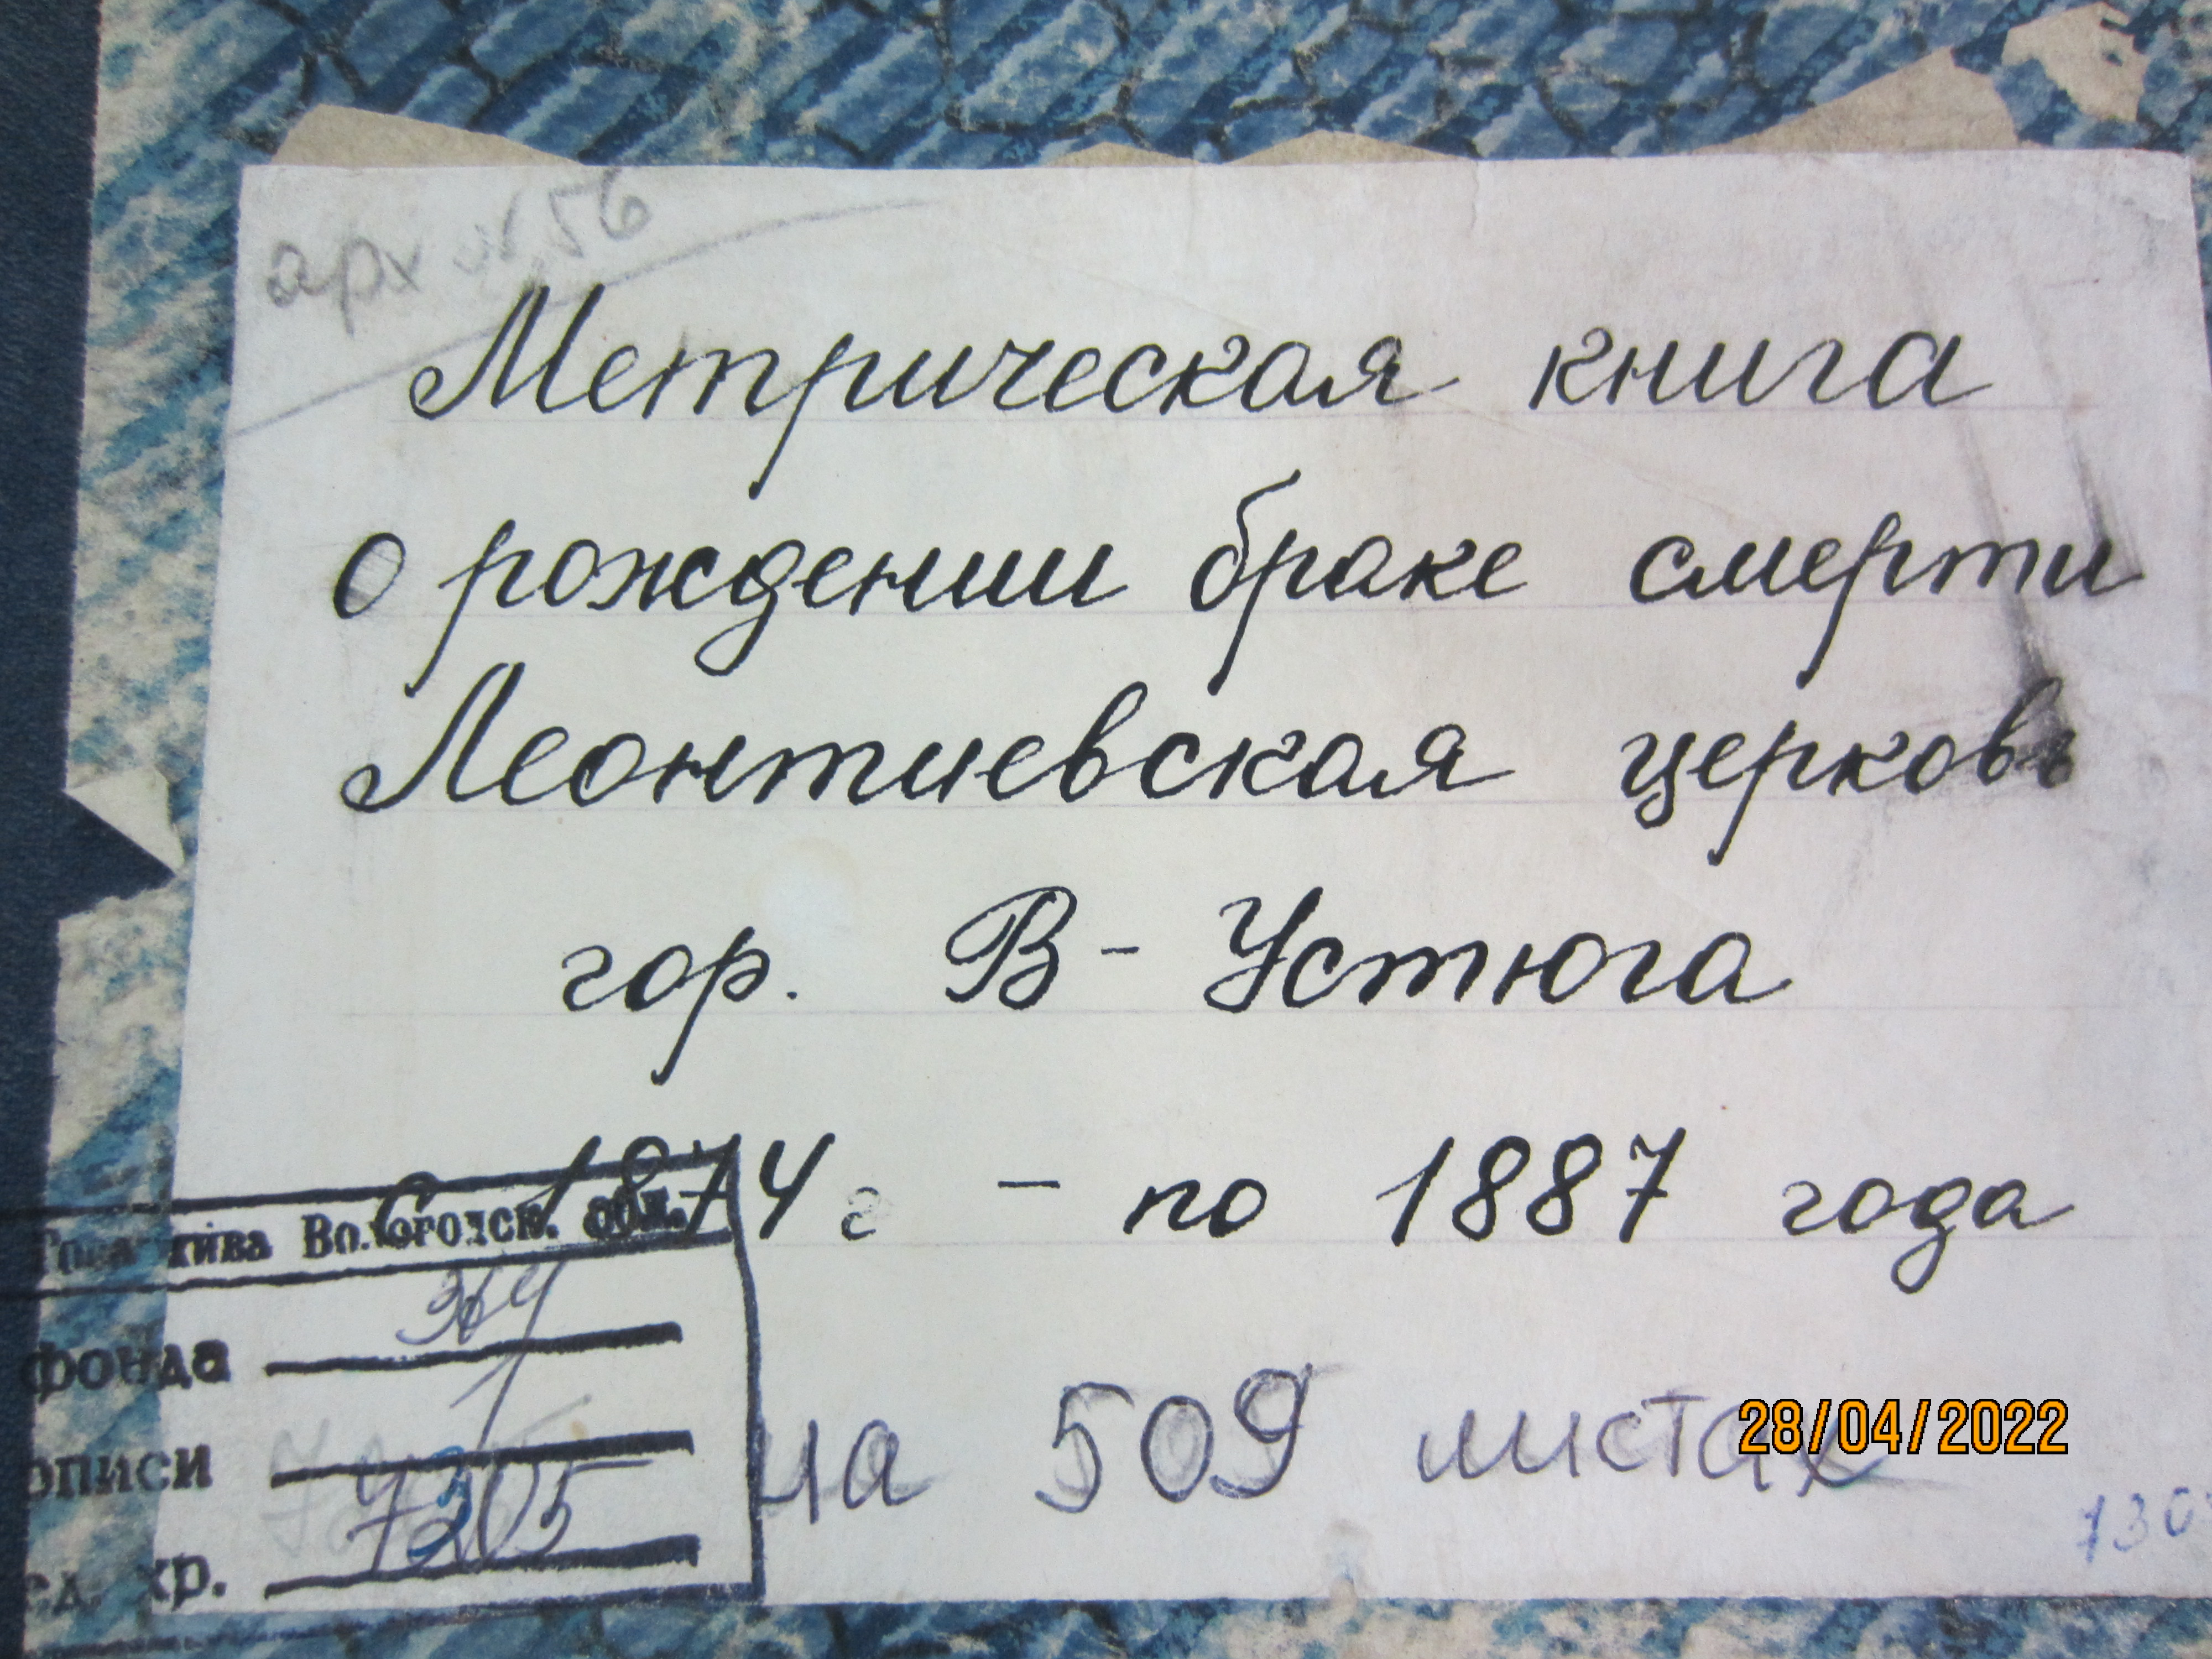 арх № 56
Метрическая книга
о рождении браке смерти
Леонтиевская церковь
гор. В-Устюга
С 1874 г - по 1887 года
Вологодск. обл.
фонда 364
описи 1
ед. хр. 7305
на 509 листах
28/04/2022